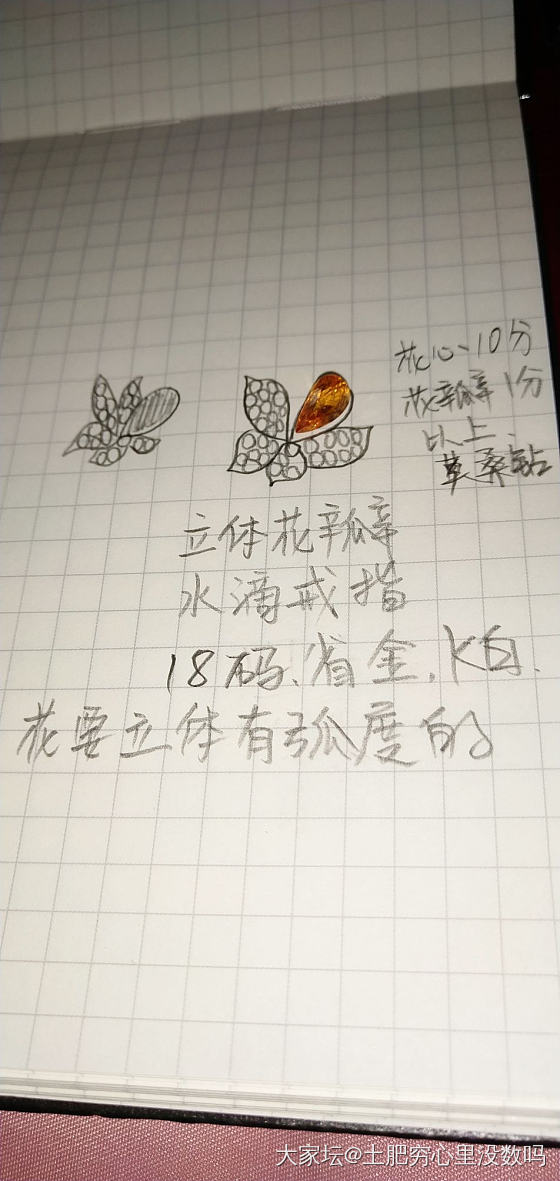 花心、10分
花瓣1分
以上、
莫桑钻
立体花瓣
水滴戒指
18码、省金、K白、
花要立体有弧度的
大家坛@土肥穷心里没数吗